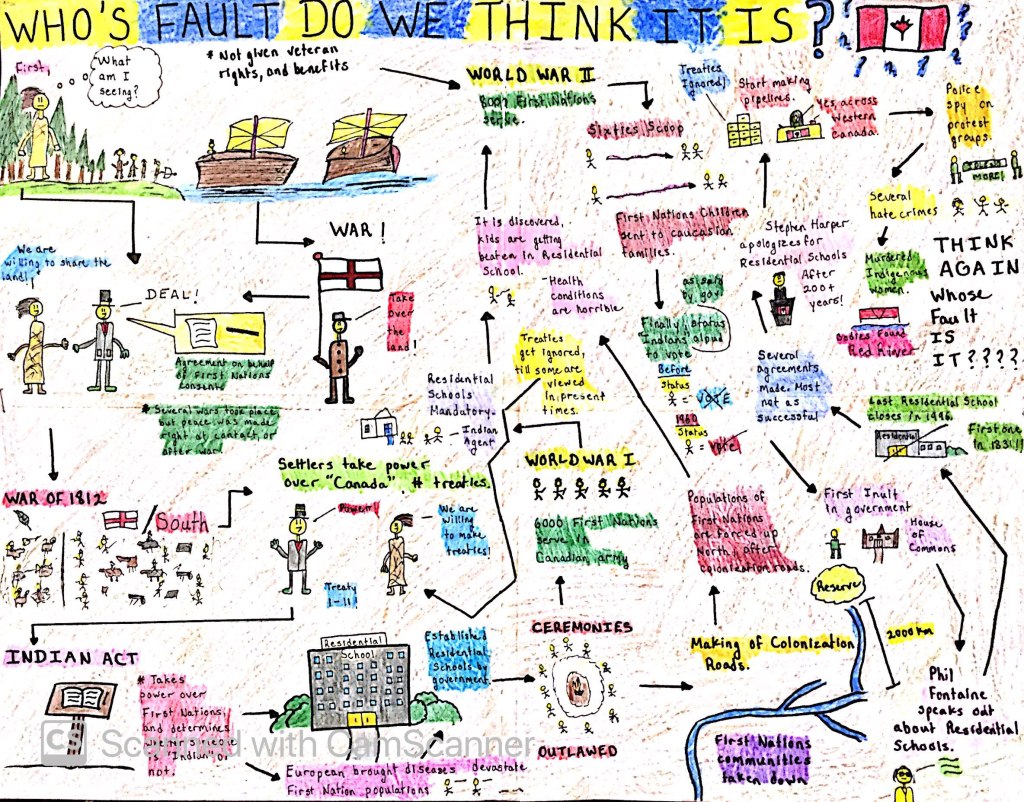 WHO'S FAULT DO WE THINK IT IS?
First,
What
am I
seeing?
* Not given veteran
rights, and benefits
WORLD WAR II
First Nations
serve.
Sixties Scoop
Treaties
Ignored!
Start making
pipelines.
Yes, across
Western
Canada.
Police
spy on
protest
groups.
MORE!
Several
hate crimes
Murdered
Indigenous
women.
Bodies Found
Red River
THINK
AGAIN
Whose
Fault
IS
IT????
We are
willing to share the
land!
DEAL!
Agreement on behalf
of First Nations
consents
* Several wars took place
but peace was made
right at contact or
after war!
WAR!
Take
over
the
land!
It is discovered,
kids are getting
beaten in Residential
School.
-Health
conditions
are horrible
First Nations Children
sent to caucasian
families.
Stephen Harper
apologizes for
Residential Schools
After
200+
years!
as said
by gov
Finally, "status
Indians" allowed
to vote
Before
Status
= VOTE
1960
Status
= Vote
Treaties
get ignored,
till some are
viewed
in present
times.
Residential
Schools
Mandatory-
- Indian
Agent
Several
agreements
made. Most
not as
successful
Last Residential School
closes in 1996.
Residential
First one
in 1831!!
WAR OF 1812
South
Settlers take power
over "Canada". # treaties.
We are
willing
to make
treaties!
Treaty
1-11
WORLD WAR I
6000 First Nations
serve in
Canadian army
Populations of
First Nations
are forced up
North after
colonization roads.
First Inuit
in government
House
of
Commons
Reserve
2000km
INDIAN ACT
* Takes
power over
First Nations
and determines
whether someone
is "Indian" or
not.
Residential
School
Established
Residential
Schools by
government.
European brought diseases devastate
First Nation populations
CEREMONIES
OUTLAWED
Making of Colonization
Roads.
First Nations
communities
taken down
Phil
Fontaine
speaks out
about Residential
Schools.
CS Scanned with CamScanner